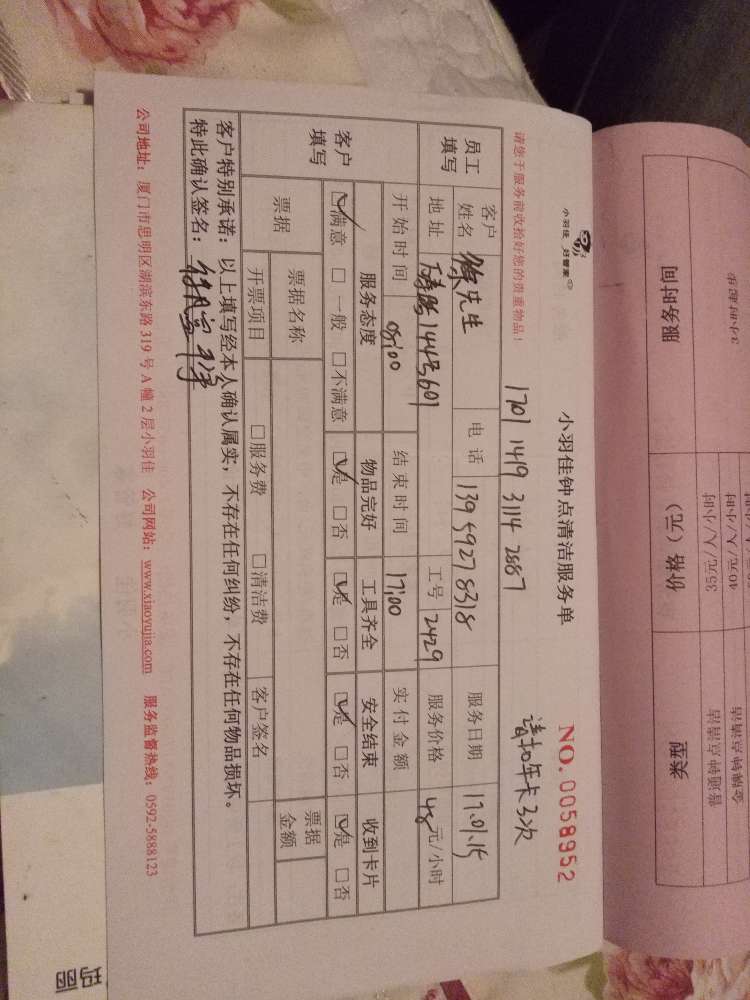 小羽佳 好管家
小羽佳钟点清洁服务单
NO.0058952
请您于服务前收拾好您的贵重物品！
1701 1419 3114 2887
请扣年卡3次
员工填写
客户姓名 徐先生 电话 139 5927 8318 服务日期 17.01.15
地址 1443601 工号 2429 服务价格 48元/小时
开始时间 08:00 结束时间 17:00 实付金额
客户填写
服务态度 物品完好 工具齐全 安全结束 收到卡片
☑满意 □一般 □不满意 ☑是 □否 ☑是 □否 ☑是 □否 ☑是 □否
票据 票据名称 票据金额
开票项目 □服务费 □清洁费 客户签名
客户特别承诺：以上填写经本人确认属实，不存在任何纠纷，不存在任何物品损坏。
特此确认签名：
公司地址：厦门市思明区湖滨东路319号A幢2层小羽佳 公司网站：www.xiaoyujia.com 服务监督热线：0592-5888123
服务时间 价格（元） 类型
40元/人/小时
35元/人/小时 普通钟点清洁
玛丽